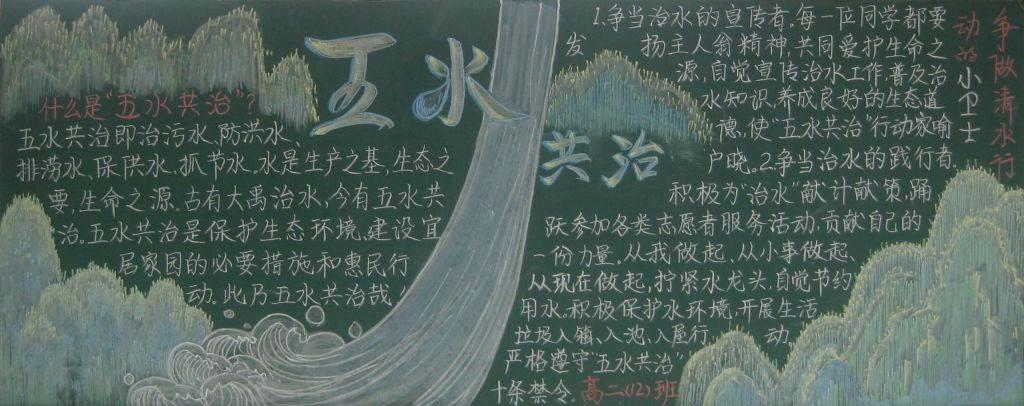 五水
共治
什么是“五水共治”?
五水共治即治污水、防洪水、
排涝水、保供水、抓节水。水是生产之基，生态之
要，生命之源。古有大禹治水，今有五水共
治。五水共治是保护生态环境，建设宜
居家园的必要措施和惠民行
动。此乃五水共治哉。
1.争当治水的宣传者。每一位同学都要
发扬主人翁精神，共同爱护生命之
源，自觉宣传治水工作，普及治
水知识，养成良好的生态道
德，使“五水共治”行动家喻
户晓。2.争当治水的践行者，
积极为“治水”献计献策，踊
跃参加各类志愿者服务活动，贡献自己的
一份力量。从我做起、从小事做起、
从现在做起，拧紧水龙头，自觉节约
用水，积极保护水环境，开展生活
垃圾入箱、入池、入屋行动
严格遵守“五水共治”
十条禁令。高二(12)班
争做清水行
动的小卫士